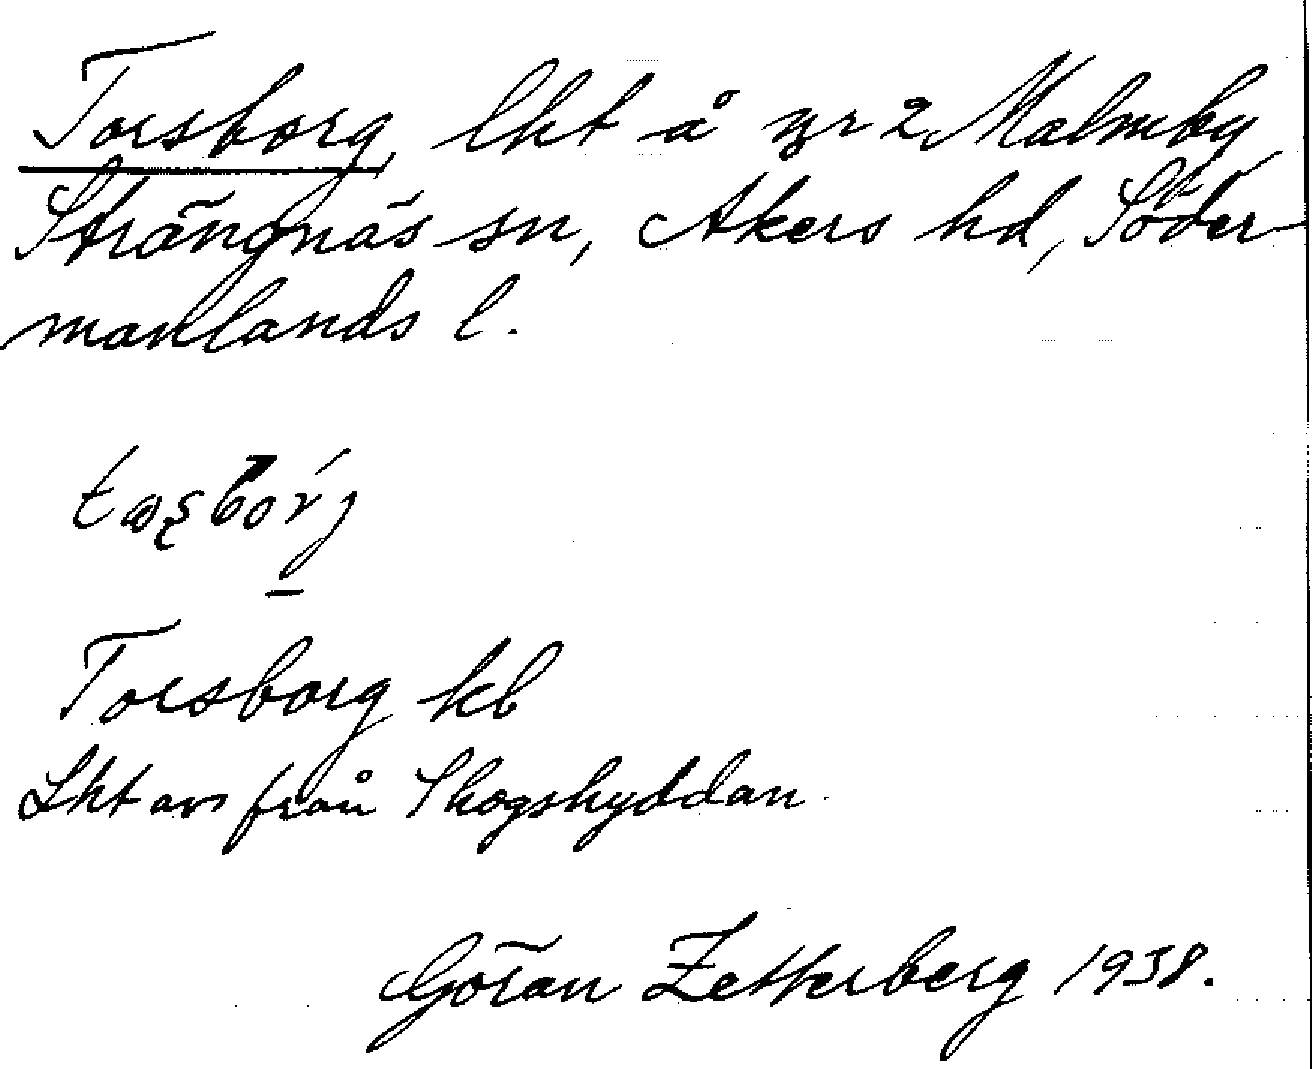 Torsborg, lht å nr 2 Malmby
Strängnäs sn, Åkers hd, Söder-
manlands l.
Torsborg kb
Lht av från Skogshyddan.
Göran Zetterberg 1938.